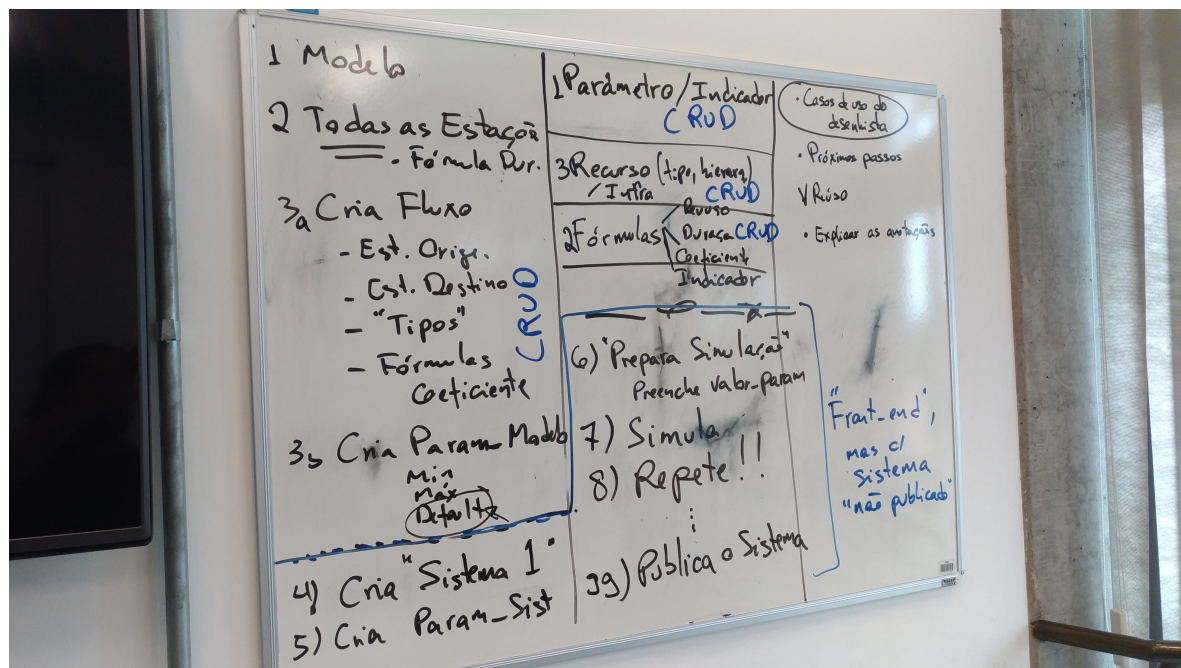 1 Modelo
2 Todas as Estaçõ
• Fórmula Dur.
3a Cria Fluxo
- Est. Orige.
- Est. Destino
- "Tipos"
- Fórmulas
Coeficiente
CRUD
3b Cria Param_Modelo
Min
Máx
Default
4) Cria "Sistema 1"
5) Cria Param_Sist
1 Parámetro/Indicador
CRUD
3 Recurso (tipo, hierarq)
/Infra CRUD
2 Fórmulas
Duraça CRUD
Coeficiente
Indicador
6) "Prepara Simulação"
Preenche valor_param
7) Simula
8) Repete!!
⋮
99) Publica o Sistema
• Casos de uso do
desenhista
• Próximos passos
V Reúso
• Explicar as anotações
"Front-end",
mas c/
sistema
"não publicado"